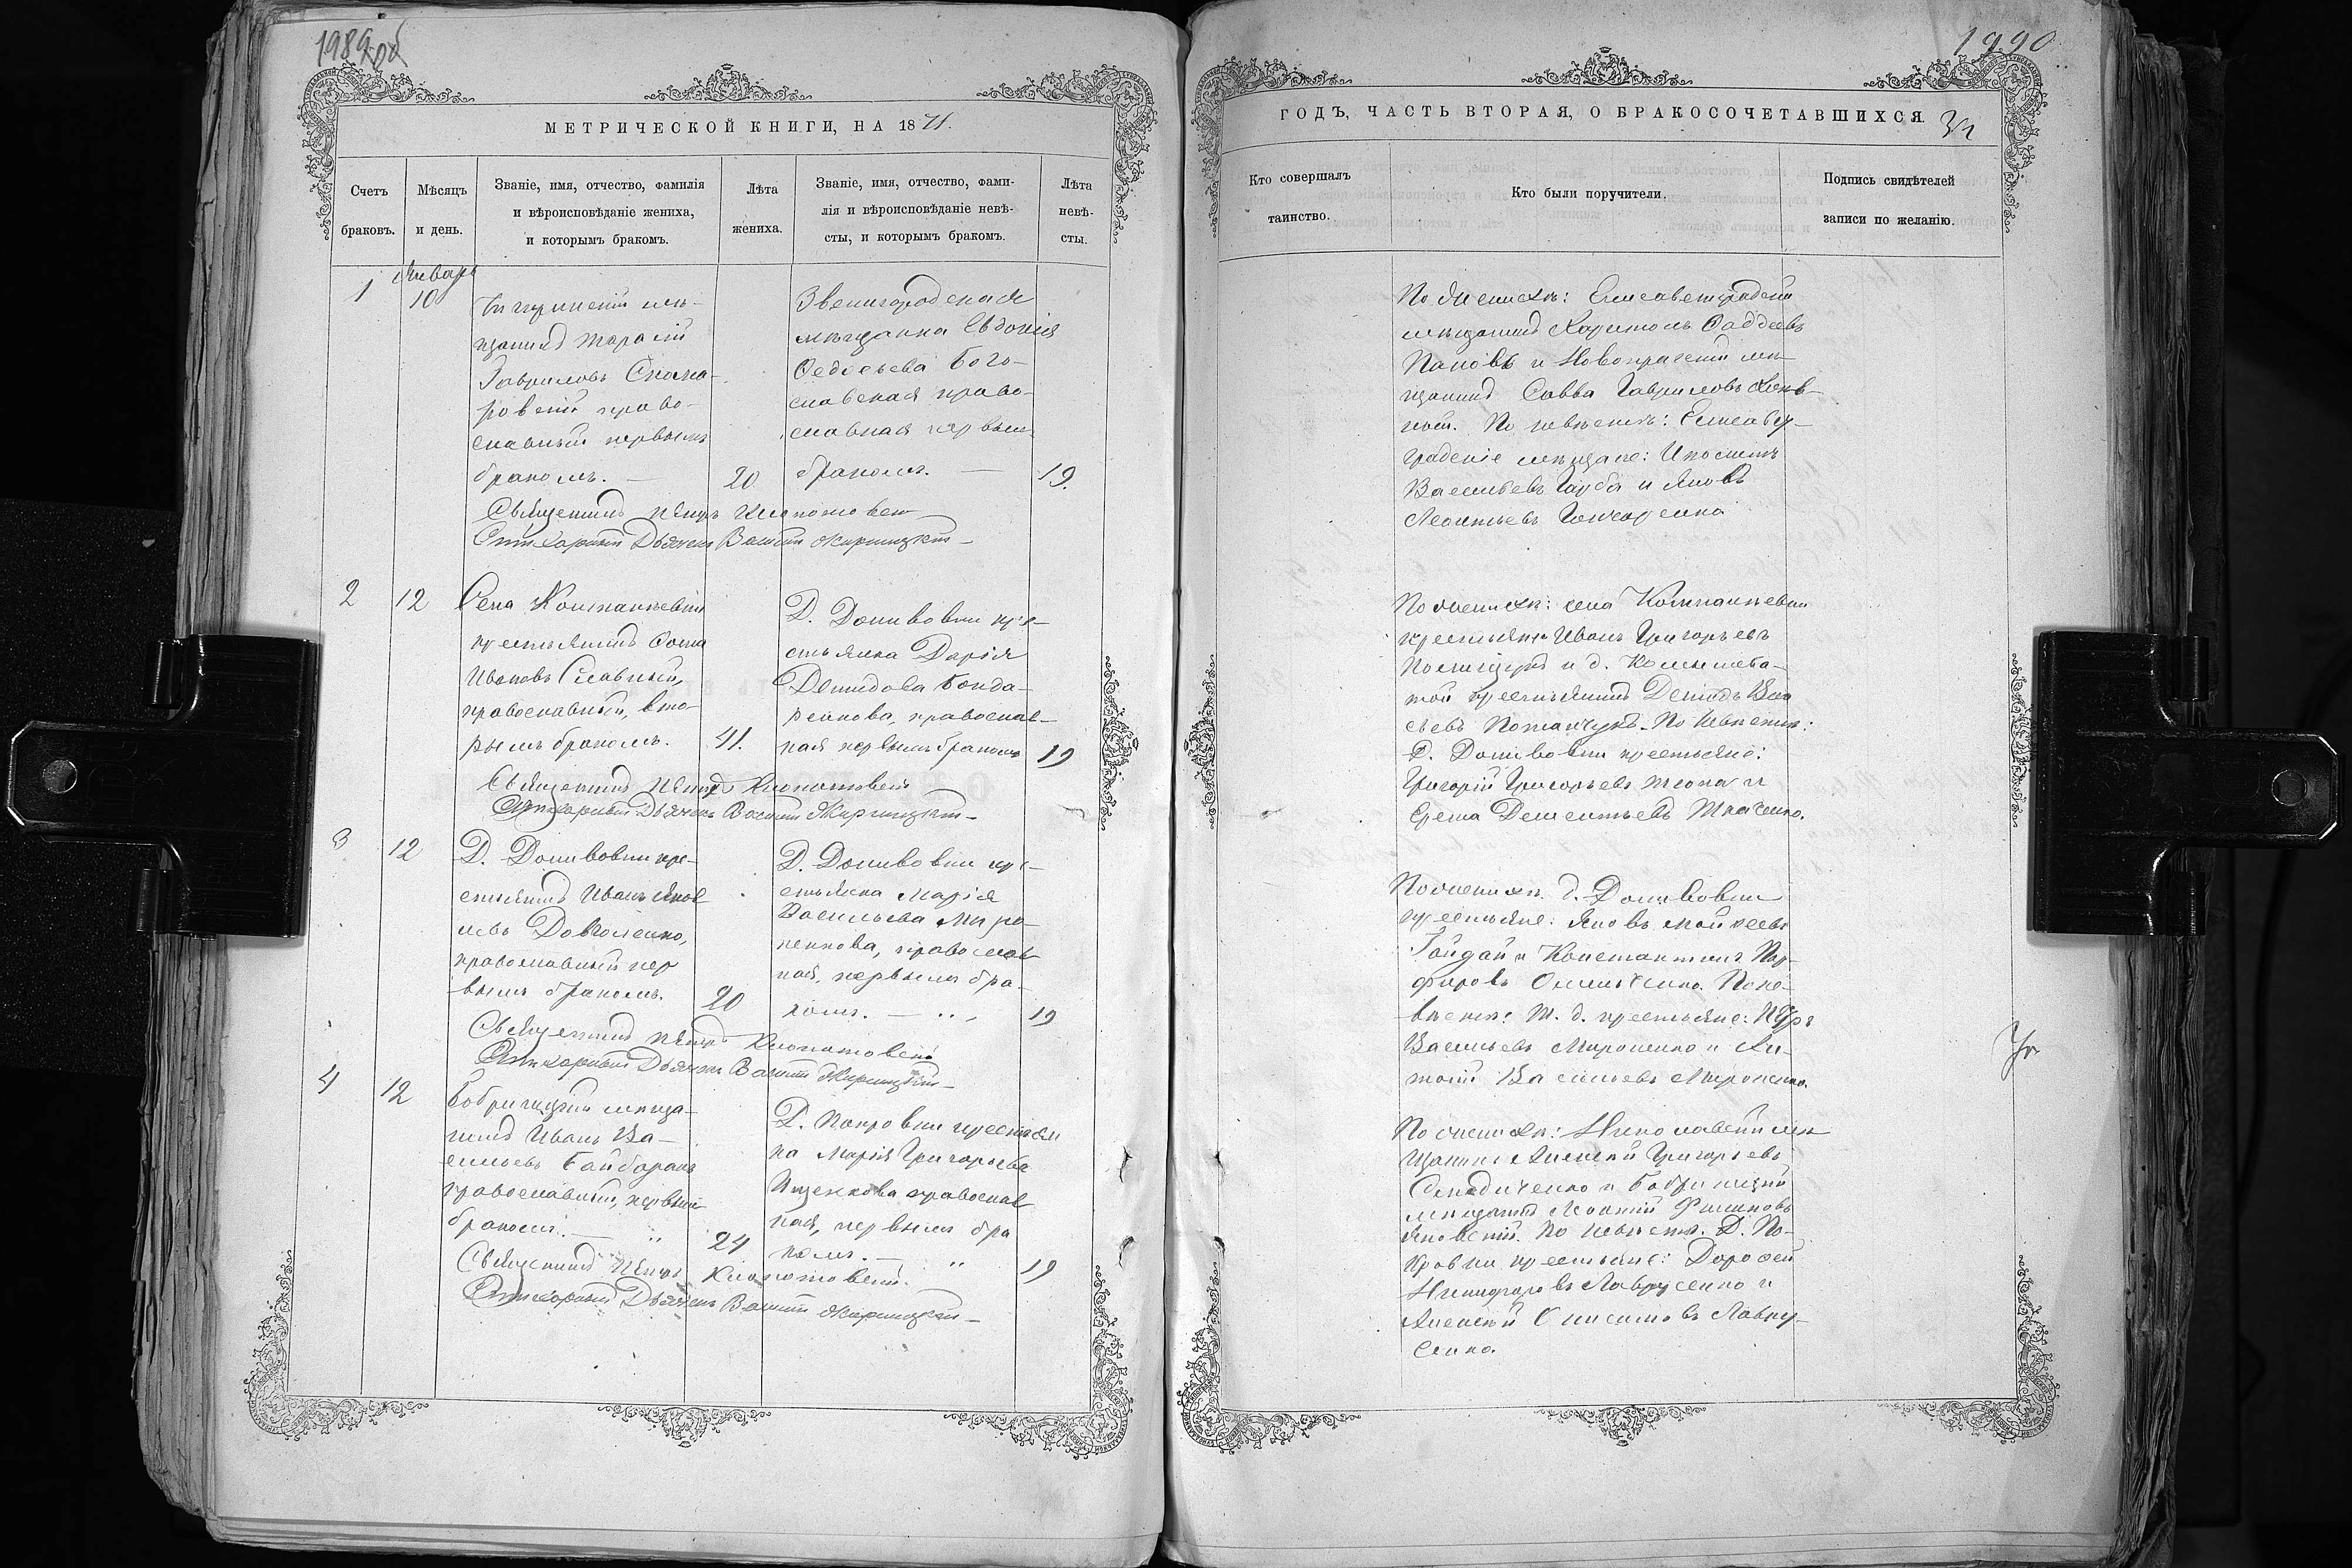 1989 об
МЕТРИЧЕСКОЙ КНИГИ, НА 1871.
Счетъ браковъ.
Мѣсяцъ и день.
Званіе, имя, отчество, фамилія
и вѣроисповѣданіе жениха,
и которымъ бракомъ.
Лѣта жениха.
Званіе, имя, отчество, фами-
лія и вѣроисповѣданіе невѣ-
сты, и которымъ бракомъ.
Лѣта невѣ-
сты.
1
Январь
10
мѣ-
щанинъ Тарасій
Гавриловъ
право-
славный первымъ
бракомъ.
20
Звенигородская
мѣщанка Евдокія
Ѳедосьева Бого-
славская право-
славная первым
бракомъ.
19.
Священникъ Петръ Клопотовскій
Стихарный Дьячекъ Василій
2
12
Села Компанѣевки
крестьянинъ Ѳома
Ивановъ Славный,
православный, вто-
рымъ бракомъ.
41.
Д. Доливовки кре-
стьянка Дарія
Демидова Бонда-
ренкова, православ-
ная первымъ бракомъ
19
Священникъ Петръ Клопотовскій
Стихарный Дьячекъ Василій
3
12
Д. Доливовки кре-
стьянинъ Иванъ Яков
левъ Довголенко,
православный пер
вымъ бракомъ.
20
Д. Доливовки кре-
стьянка Марія
Васильева Миро-
ненкова, православ
ная, первымъ бра-
комъ.
19
Священникъ Петръ Клопотовскій
Стихарный Дьячекъ Василій
4
12
Бобринецкій мѣща-
нинъ Иванъ Ва-
сильевъ Байборакъ
православный, первым
бракомъ.
24
Д. Покровки крестьян
ка Марія Григорьева
Ищенкова православ
ная, первымъ бра
комъ.
19
Священникъ Петръ Клопотовскій.
Стихарный Дьячекъ Василій
1990
ГОДЪ, ЧАСТЬ ВТОРАЯ, О БРАКОСОЧЕТАВШИХСЯ.
Кто совершалъ
таинство.
Кто были поручители.
Подпись свидѣтелей
записи по желанію.
По женихѣ: Елисаветградскій
мѣщанинъ Харитонъ Ѳаддеевъ
Паповъ и Новопражскій мѣ-
щанинъ Савва Гавриловъ
По невѣстѣ: Елисавет-
градскіе мѣщане: Ипполитъ
Васильевъ Гарба и Яковъ
Леонтьевъ Гончаренко
По женихѣ: села Компанѣевки
крестьяне Иванъ Григорьевъ
Полищукъ и д.
крестьянинъ Демидъ
По невѣстѣ:
Д. Доливовки крестьяне:
Григорій Григорьевъ и
Ерема Дементьевъ Ткаченко.
По женихѣ д. Доливовки
крестьяне: Яковъ Моисеевъ
Гайдай и Константинъ Пор-
фировъ Омельченко. По не-
вѣстѣ: т. д. крестьяне: Петръ
Васильевъ Мироненко и
Васильевъ Мироненко.
По женихѣ: Николаевскій мѣ
щанинъ Алексѣй Григорьевъ
и Бобринецкій
мѣщанинъ Филиповъ
Яновскій. По невѣстѣ. Д. По-
кровки крестьяне: Дорофей
Никифоровъ Лаврусенко и
Алексѣй Онисимовъ Лавру-
сенко.